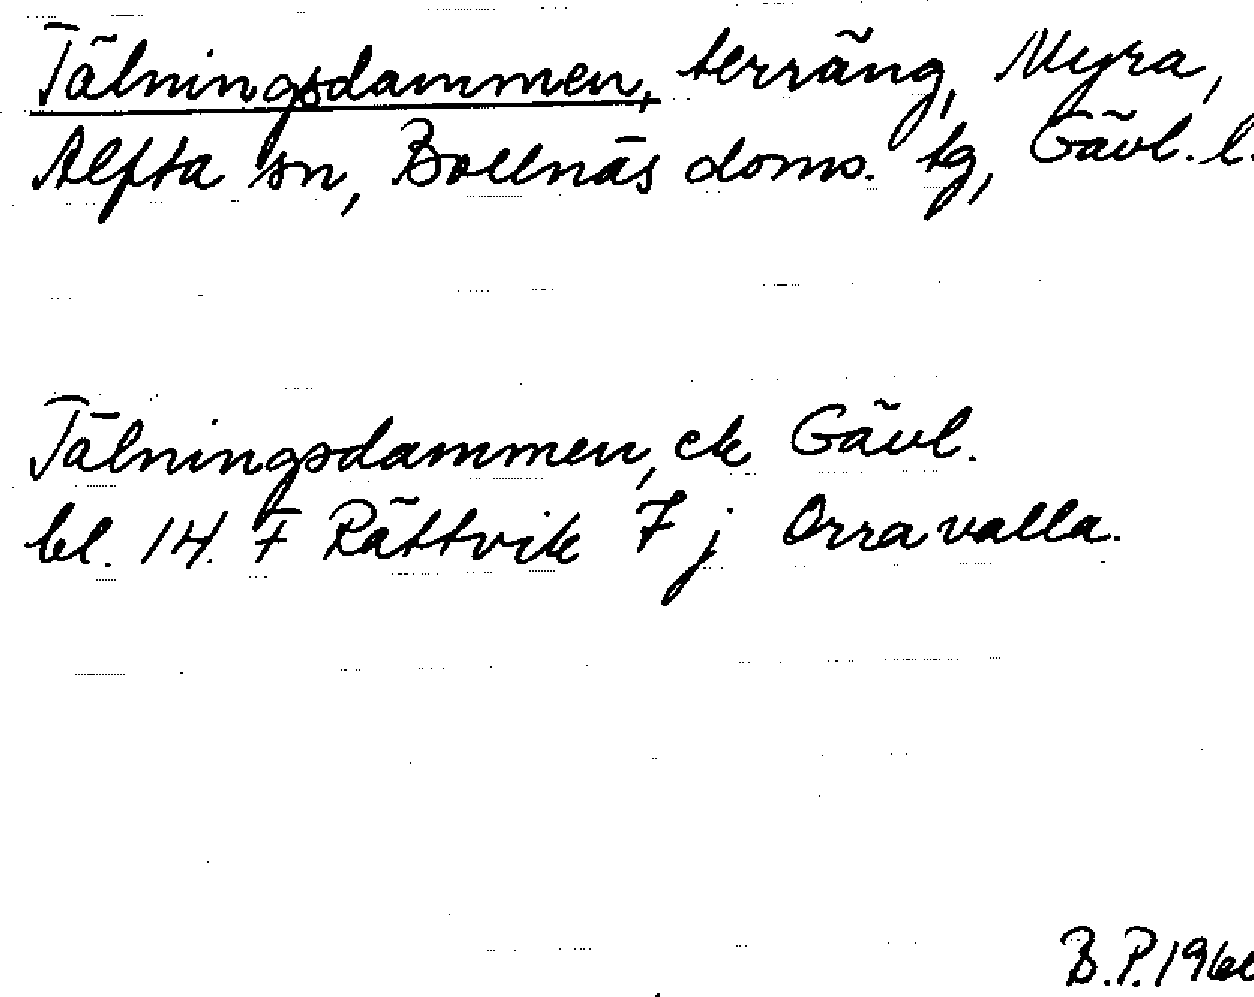 Tälningsdammen, terräng, Myra,
Alfta sn, Bollnäs doms. tg, Gävl. l.
Tälningsdammen, ek Gävl.
bl. 14. F Rättvik 7 j Orravalla.
B.P. 196